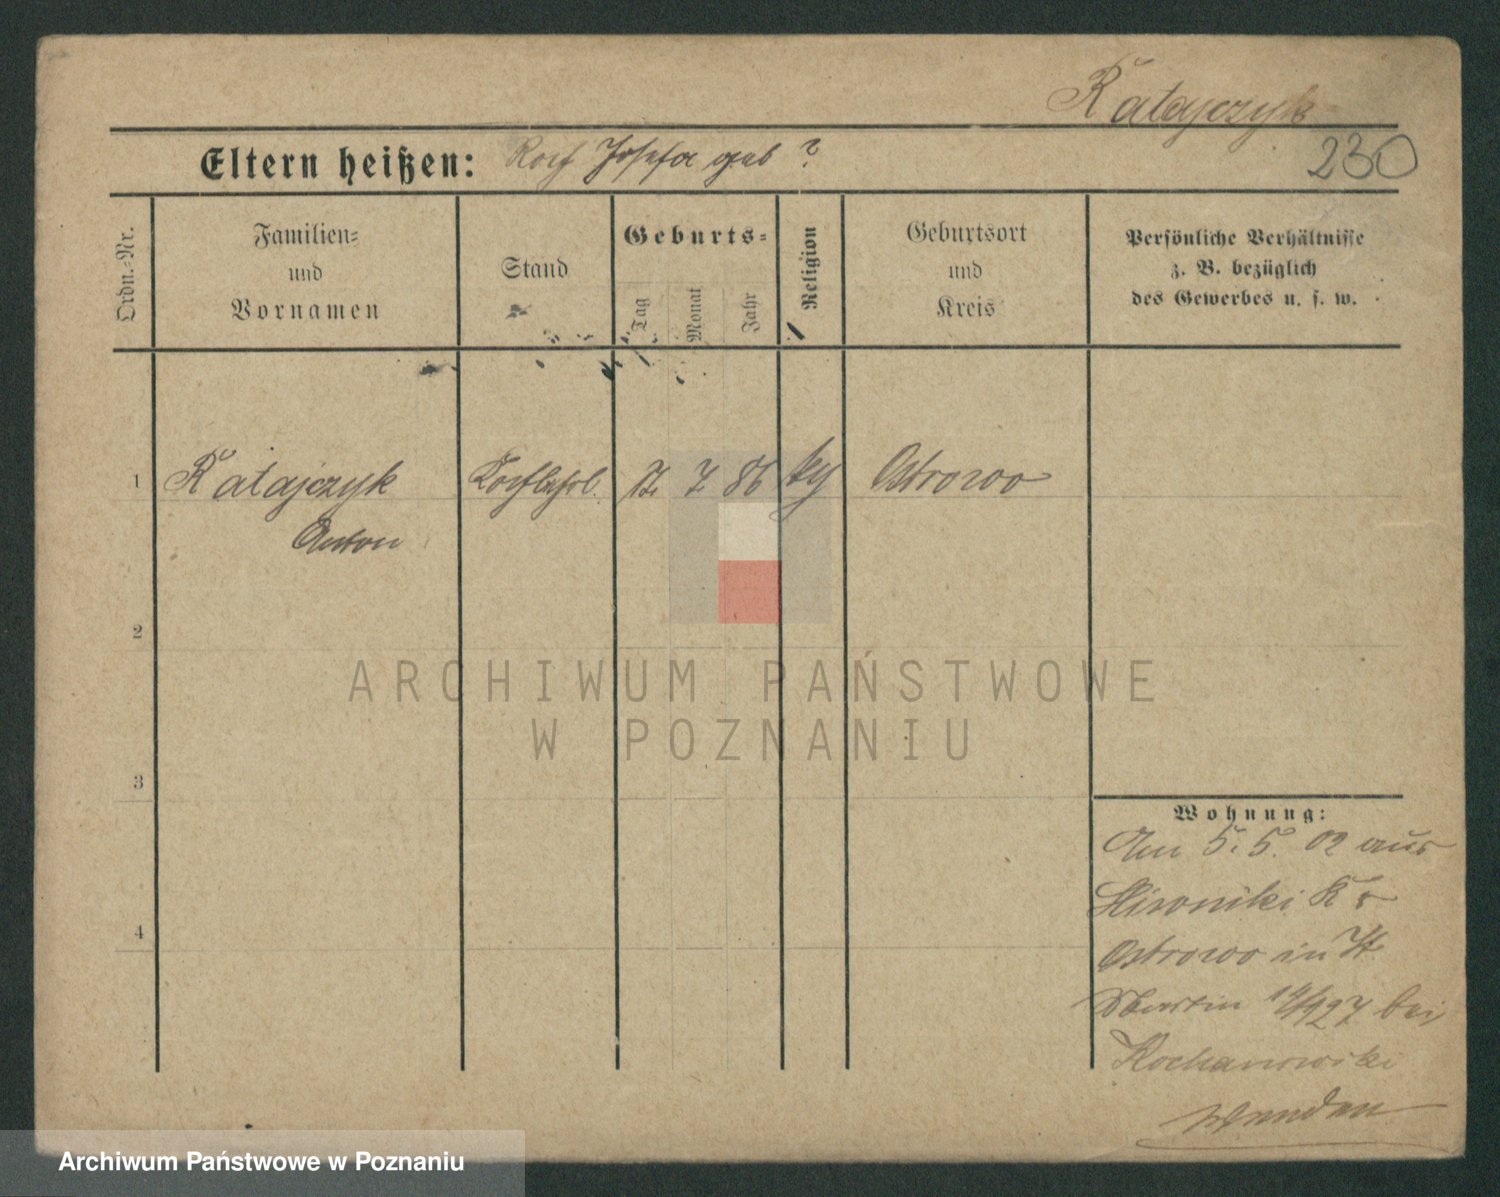 Ratajczyk
Eltern heißen: Josefa geb ?
230
Ordn.-Nr.
Familien-
und
Vornamen
Stand
Geburts-
Tag
Monat
Jahr
Religion
Geburtsort
und
Kreis
Persönliche Verhältnisse
z. B. bezüglich
des Gewerbes u. s. w.
1
Ratajczyk
Anton
7 86
Ostrowo
2
ARCHIWUM PAŃSTWOWE
W POZNANIU
3
4
Wohnung:
Am 5. 5. 02 aus
Kr
Ostrowo in St.
Martin bei
Kochanowski
Archiwum Państwowe w Poznaniu